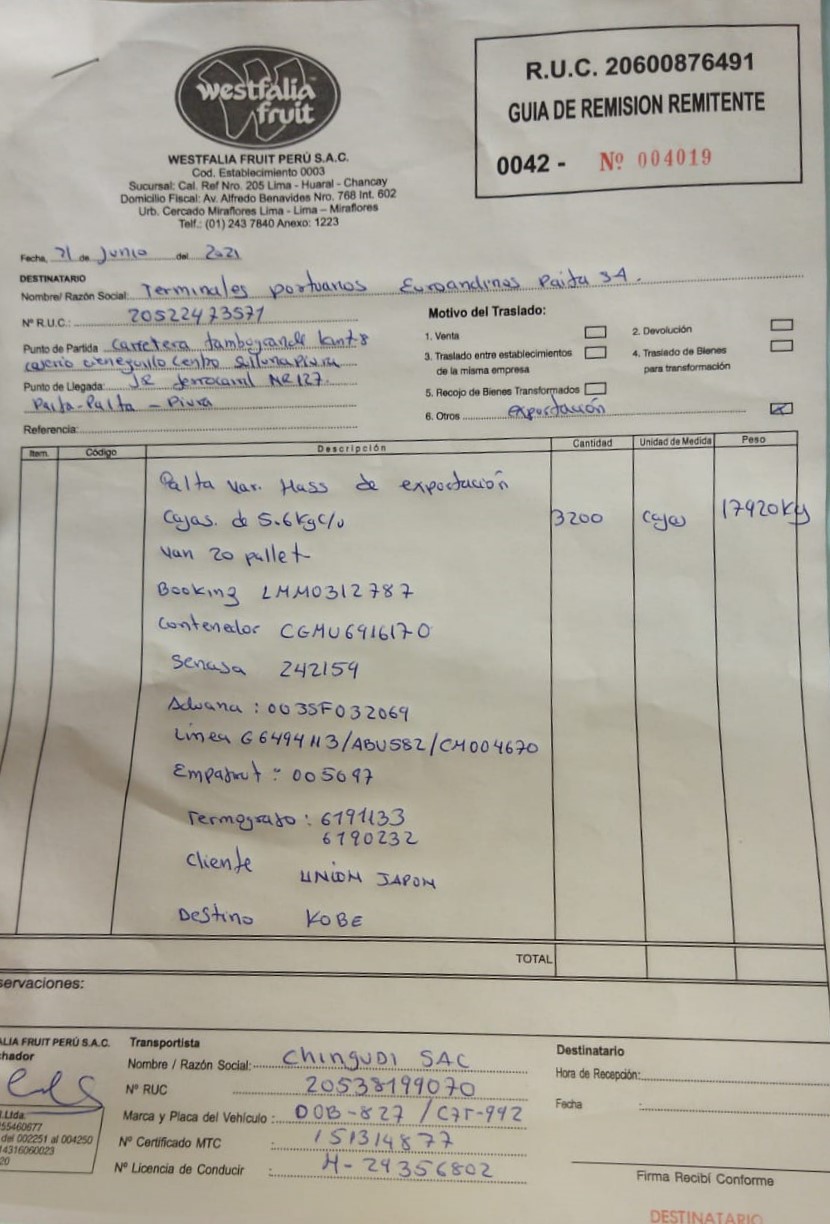 westfalia
fruit
WESTFALIA FRUIT PERÚ S.A.C.
Cod. Establecimiento 0003
Sucursal: Cal. Ref Nro. 205 Lima - Huaral - Chancay
Domicilio Fiscal: Av. Alfredo Benavides Nro. 768 Int. 602
Urb. Cercado Miraflores Lima - Lima – Miraflores
Telf.: (01) 243 7840 Anexo: 1223
R.U.C. 20600876491
GUIA DE REMISION REMITENTE
0042 - Nº 004019
Fecha, 21 de Junio del 2021
DESTINATARIO
Nombre/ Razón Social: Terminales portuarios Euroandinos Paita SA.
Nº R.U.C.: 20522473571
Punto de Partida Carretera tambogrande km 7-8
caserio cieneguillo Centro Sullana Piura
Punto de Llegada: JR ferrocarril NR 127.
Paita-Paita - Piura
Referencia:
Motivo del Traslado:
1. Venta
2. Devolución
3. Traslado entre establecimientos de la misma empresa
4. Traslado de Bienes para transformación
5. Recojo de Bienes Transformados
6. Otros exportación
Item. Código Descripción Cantidad Unidad de Medida Peso
Palta var. Hass de exportación
Cajas. de 5.6 kg c/u 3200 Cajas 17920 kg
Van 20 pallet
Booking LMM0312787
Contenedor CGMU6916170
Senasa 242159
Aduana : 003SF032069
Linea G6494113/ABU582/CM004670
: 005097
Termografo : 6191133
6190232
Cliente UNION JAPON
Destino KOBE
TOTAL
servaciones:
ALIA FRUIT PERÚ S.A.C.
chador
.Ltda.
55460677
del 002251 al 004250
14316060023
20
Transportista
Nombre / Razón Social: CHINGUDI SAC
Nº RUC 20538199070
Marca y Placa del Vehículo : D0B-827 / C7T-992
Nº Certificado MTC : 151314877
Nº Licencia de Conducir : H-29356802
Destinatario
Hora de Recepción:
Fecha :
Firma Recibí Conforme
DESTINATARIO